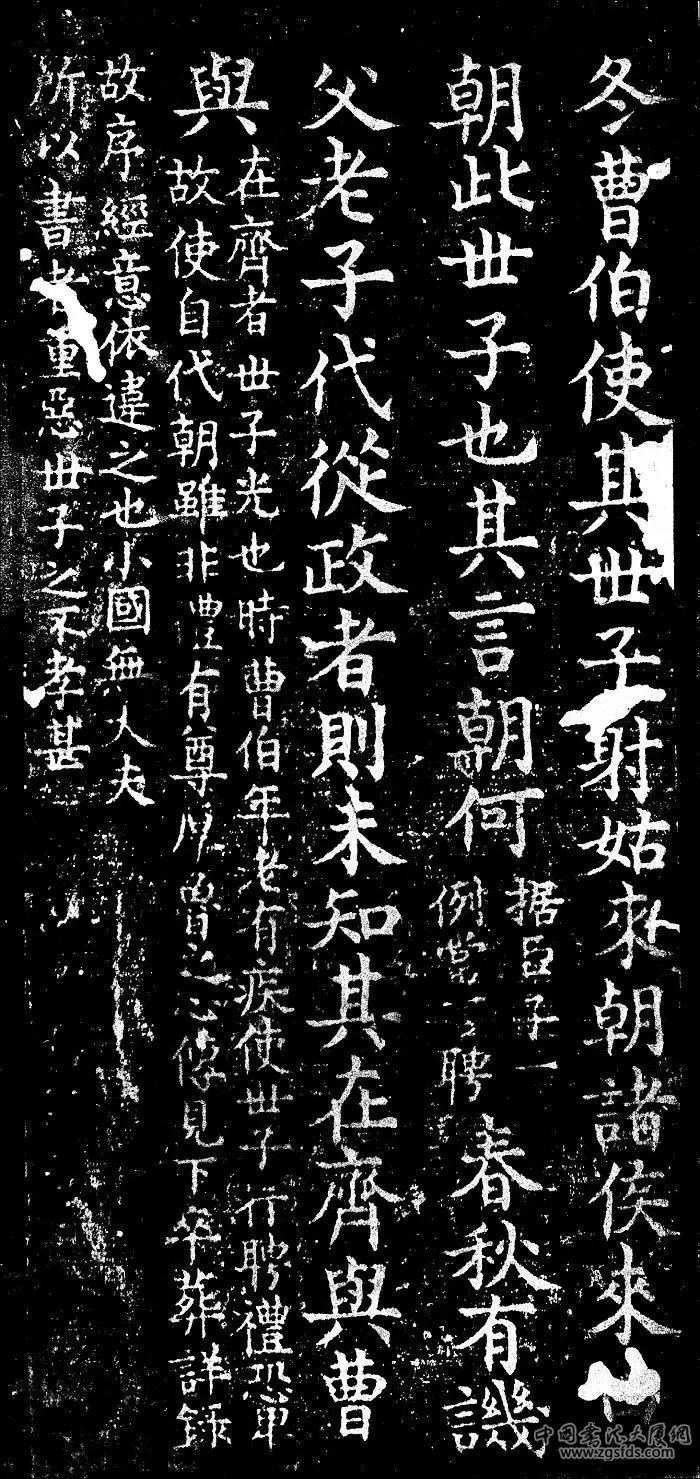 冬曹伯使其世子射姑來朝諸侯來
朝此世子也其言朝何
据臣子一
例當言聘
春秋有譏
父老子代從政者則未知其在齊與曹
與
在齊者世子光也時曹伯年老有疾使世子行聘禮恐卑
故使自代朝雖非禮有尊厚魯之心傳見下卒葬詳録
故序經意依違之也小國無大夫
所以書者重惡世子之不孝甚
中国书法大展网
www.zgsfds.com